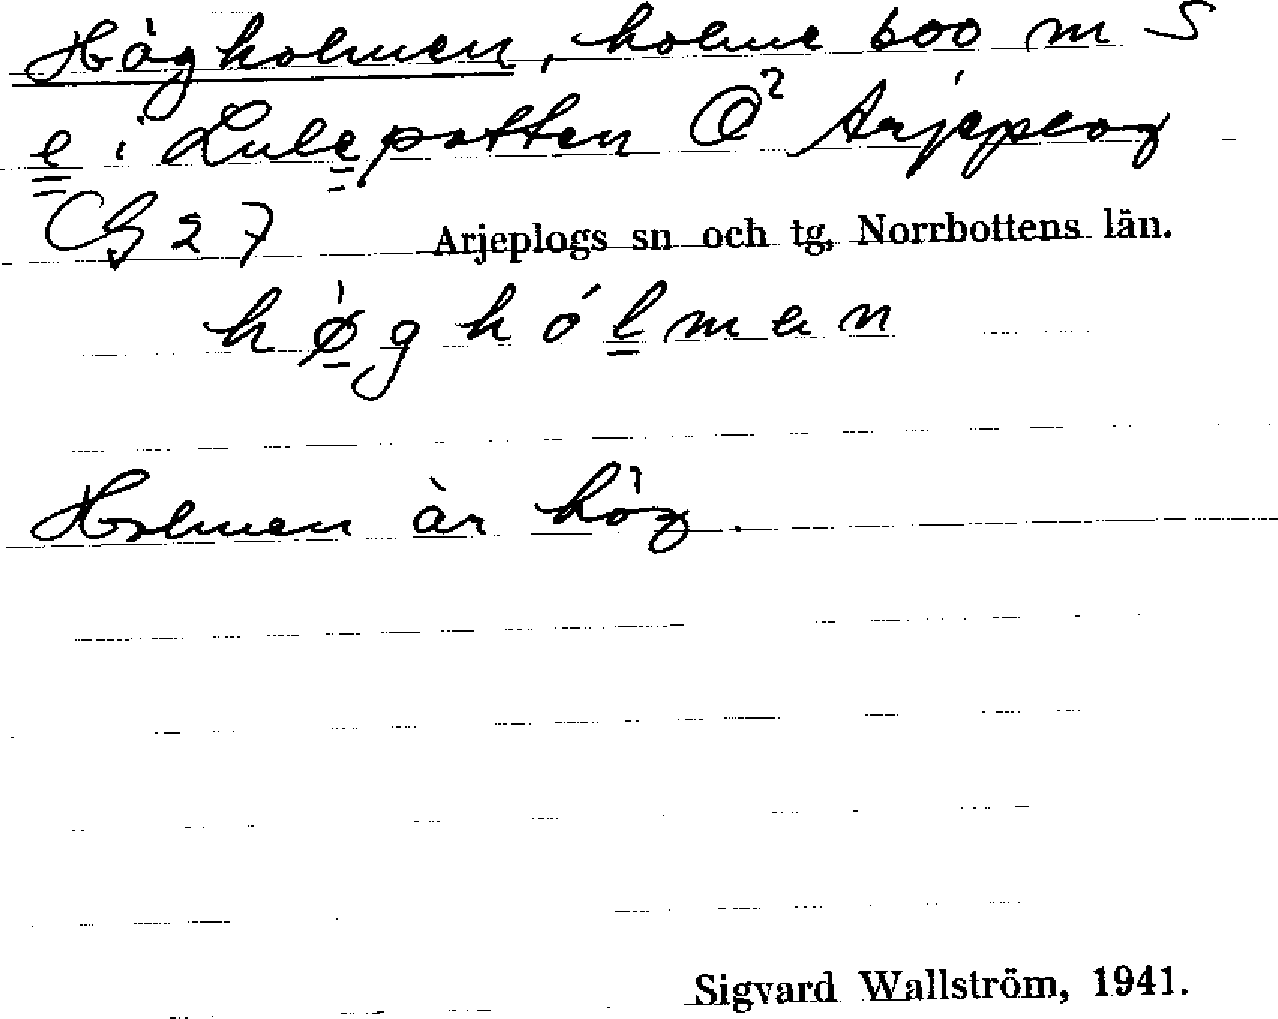 Högholmen, holme 600 m S
e i Lulepotten Ö² Arjeplog
CG 27 Arjeplogs sn och tg, Norrbottens län.
høghólman
Holmen är hög.
Sigvard Wallström, 1941.